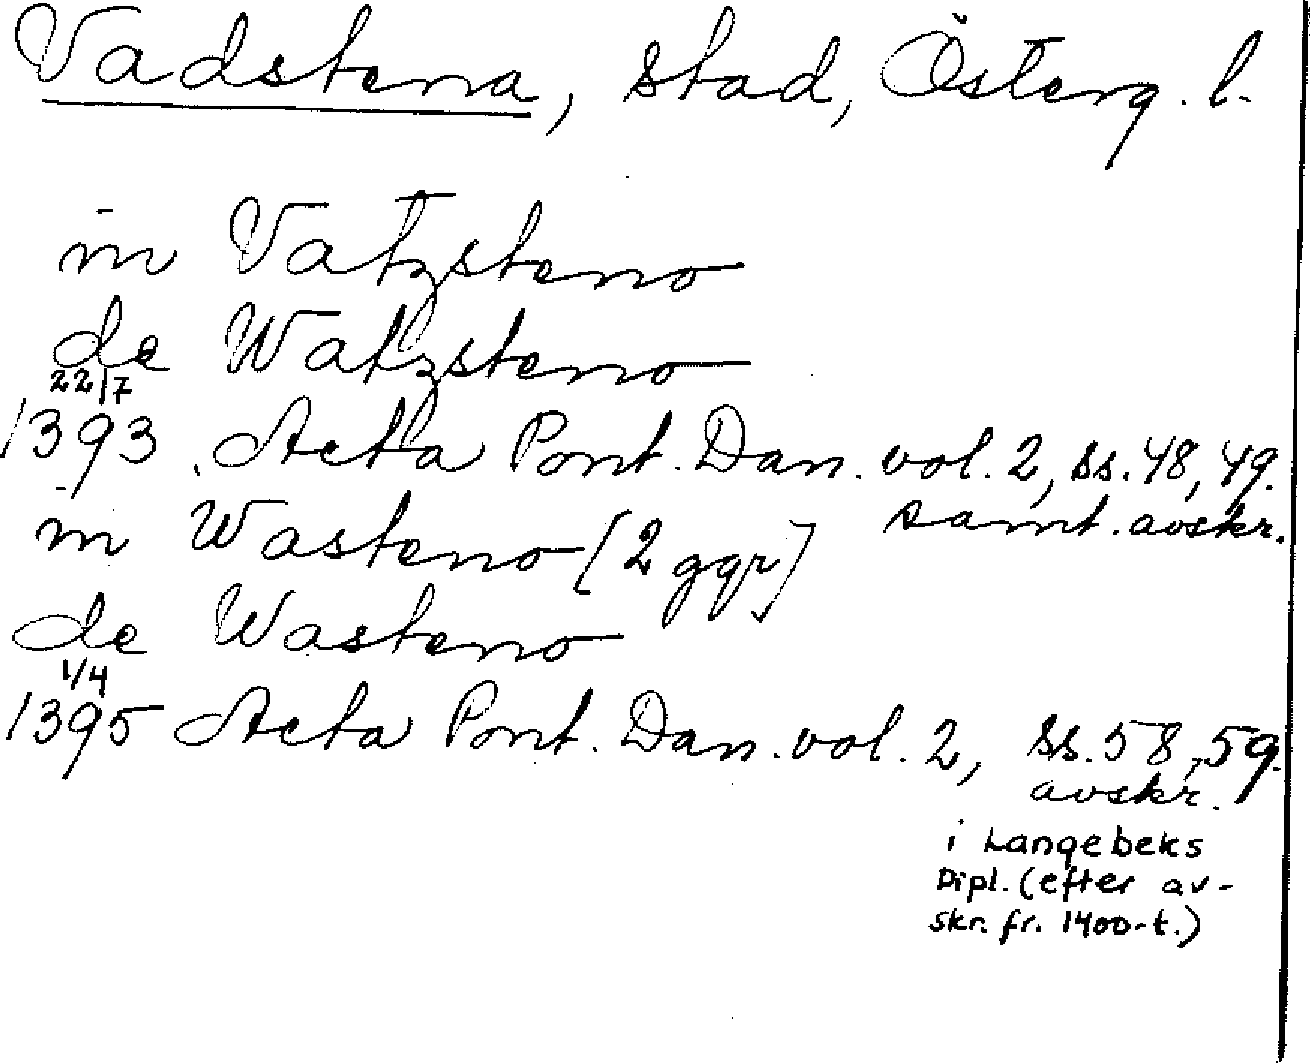 Vadstena, stad, Österg. l.
in Vatzsteno
de Watzsteno
22/7
1393. Acta Pont. Dan. vol. 2, ss. 48, 49.
samt. avskr.
in Wasteno [2 ggr]
de Wasteno
1/4
1395 Acta Pont. Dan. vol. 2, ss. 58, 59.
avskr.
i Langebeks
Dipl. (efter av-
skr. fr. 1400-t.)